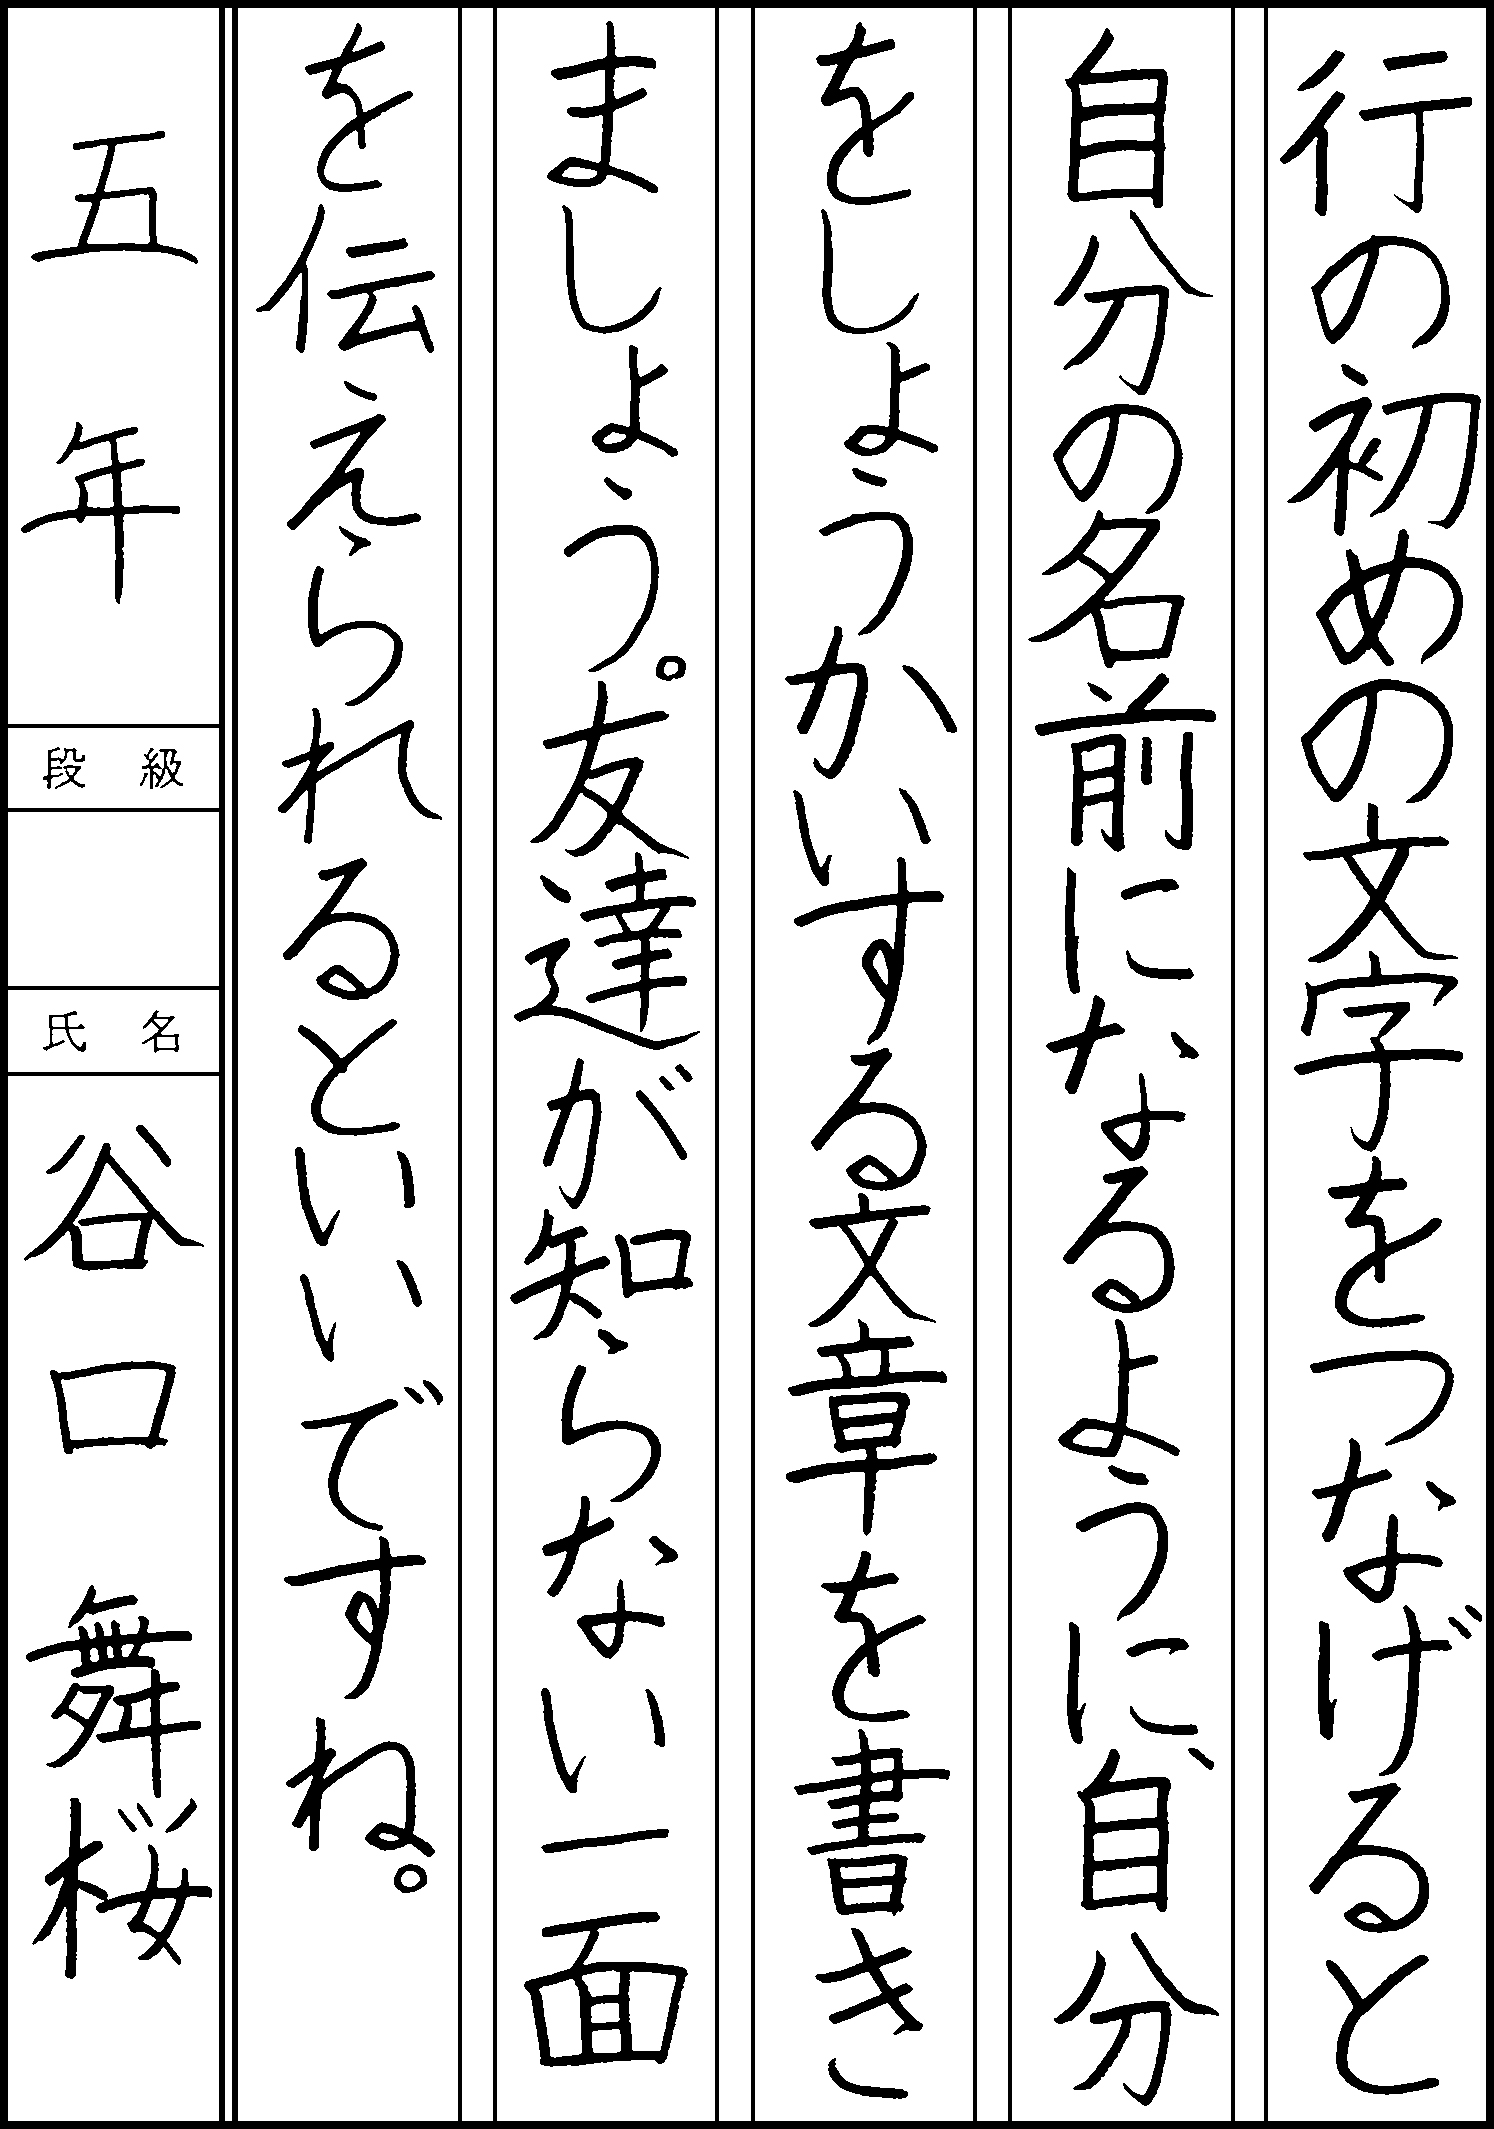 行の初めの文字をつなげると
自分の名前になるように、自分
をしょうかいする文章を書き
ましょう。友達が知らない一面
を伝えられるといいですね。
五年
段級
氏名
谷口舞桜